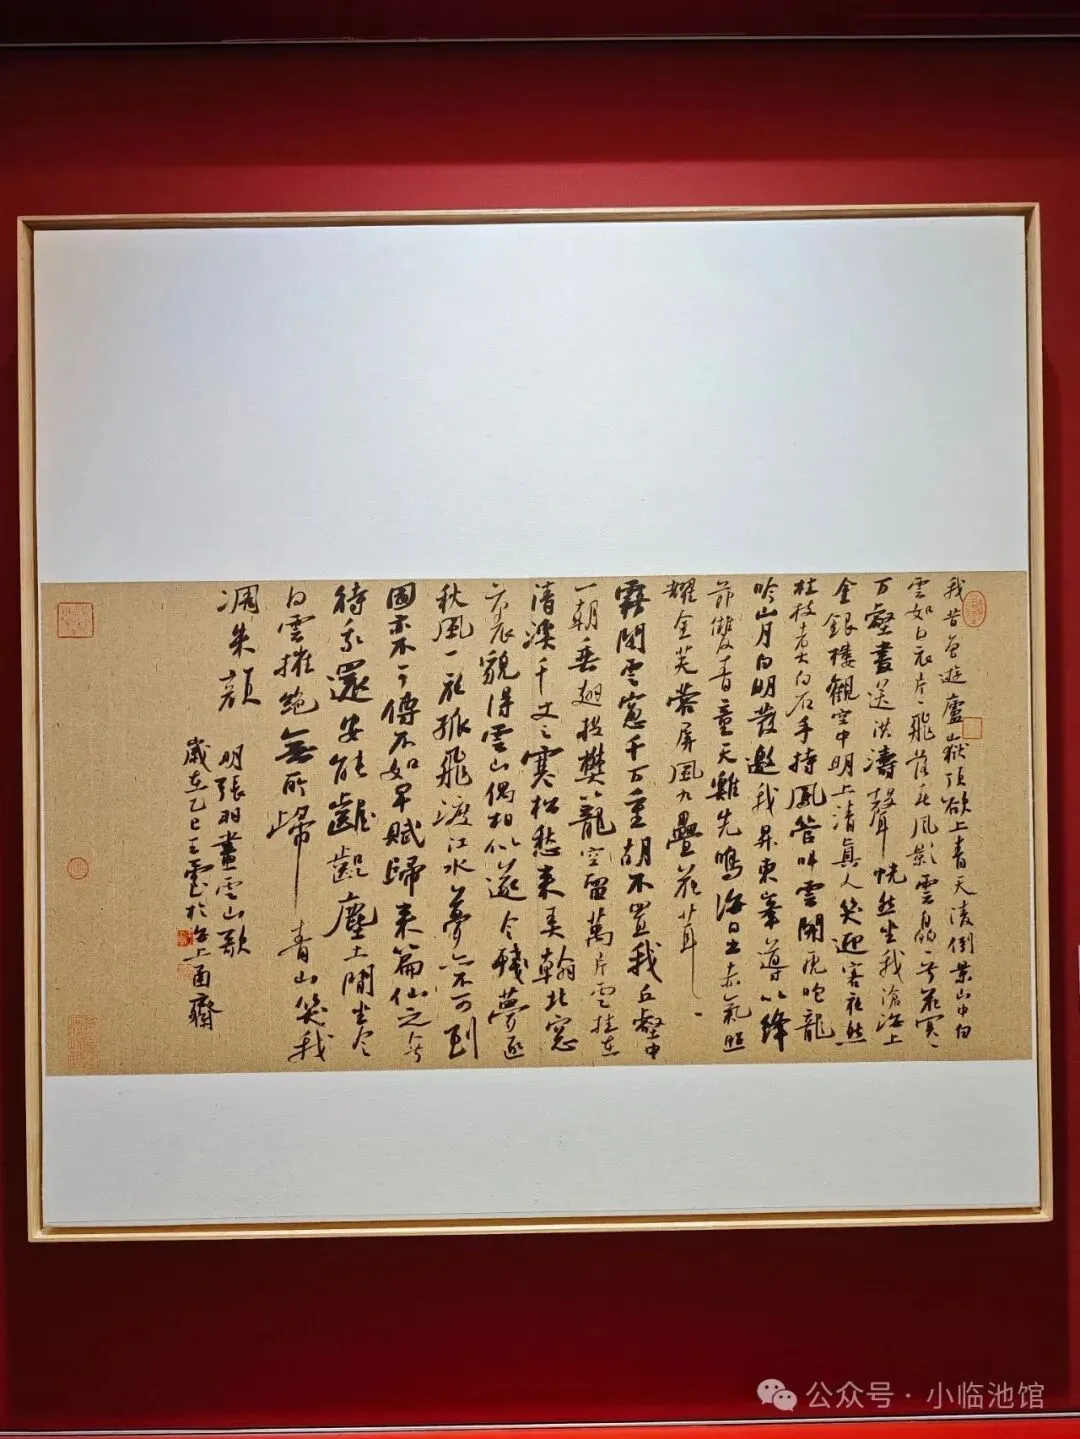 我昔曾遊廬嶽頂欲上青天淩倒景山中白
雲如白衣片片飛落春風影雲晶晶兮花冥冥
万壑晝送洪濤聲恍然坐我滄海上
金銀樓觀空中明上清真人笑迎客夜然
桂枝煮白石手持鳳管叫雲開虎咆龍
吟山月白明發邀我昇東峯導以絳
節雙青童天雞先鳴海日出赤氣照
耀金芙蓉屏風九疊花茸茸
霧閣雲窓千万重胡不置我丘壑中
一朝垂翅投樊籠空留萬片雲挂在
清溪千丈之寒松愁来美翰北窓
雲山偶相似遂令殘夢逐
秋風一夜孤飛渡江水夢亦不可到
圖亦不可傳不如早賦歸来篇仙之人兮
待我還安能齷齪塵土間坐令
白雲摧絶無所歸青山笑我
凋朱顔
明張羽畫雲山歌
歲在乙巳之於海上酉齋
公众号·小临池馆